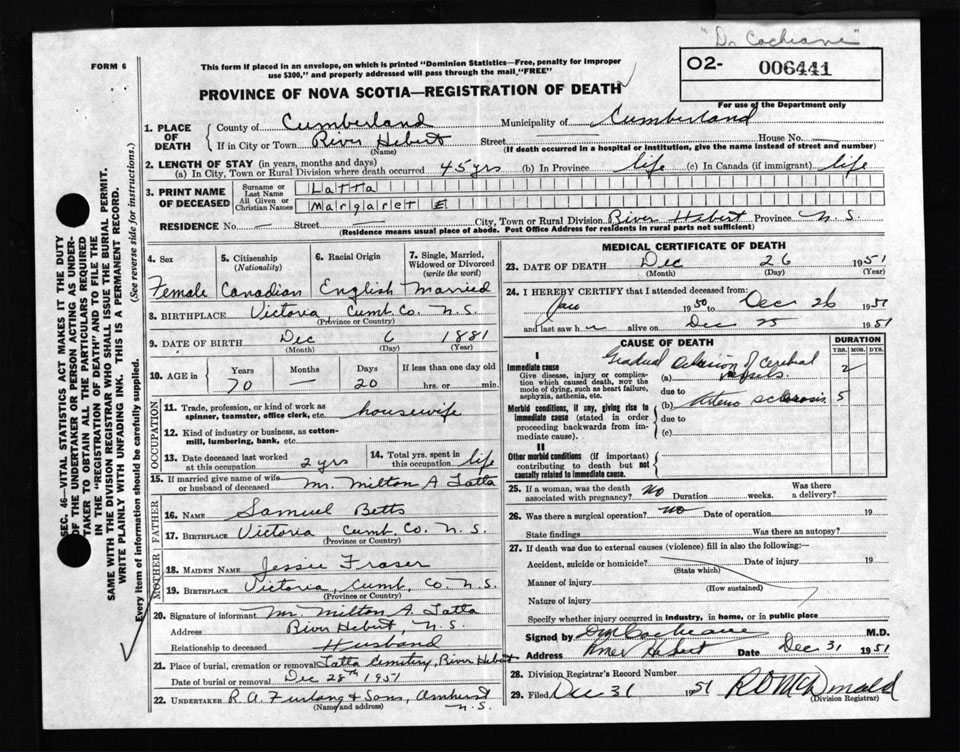 "Dr Cochrane"
FORM 6
This form if placed in an envelope, on which is printed "Dominion Statistics—Free, penalty for improper
use $300," and properly addressed will pass through the mail "FREE"
O2- 006441
PROVINCE OF NOVA SCOTIA—REGISTRATION OF DEATH
For use of the Department only
1. PLACE OF DEATH County of Cumberland Municipality of Cumberland
If in City or Town River Hebert Street House No.
(Name) (If death occurred in a hospital or institution, give the name instead of street and number)
2. LENGTH OF STAY (in years, months and days)
(a) In City, Town or Rural Division where death occurred 45 yrs (b) In Province life (c) In Canada (if immigrant) life
3. PRINT NAME OF DECEASED Surname or Last Name Latta
All Given or Christian Names Margaret E
RESIDENCE No. — Street — City, Town or Rural Division River Hebert Province N.S.
(Residence means usual place of abode. Post Office Address for residents in rural parts not sufficient)
4. Sex 5. Citizenship (Nationality) 6. Racial Origin 7. Single, Married, Widowed or Divorced (write the word)
Female Canadian English Married
8. BIRTHPLACE Victoria Cumb. Co. N.S.
(Province or Country)
9. DATE OF BIRTH Dec 6 1881
(Month) (Day) (Year)
10. AGE in Years Months Days If less than one day old
70 — 20 hrs. or min.
OCCUPATION
11. Trade, profession, or kind of work as spinner, teamster, office clerk, etc. housewife
12. Kind of industry or business, as cotton-mill, lumbering, bank, etc.
13. Date deceased last worked at this occupation 2 yrs 14. Total yrs. spent in this occupation life
15. If married give name of wife or husband of deceased Mr. Milton A Latta
FATHER
16. NAME Samuel Betts
17. BIRTHPLACE Victoria Cumb. Co. N.S.
(Province or Country)
MOTHER
18. MAIDEN NAME Jessie Fraser
19. BIRTHPLACE Victoria, Cumb. Co. N.S.
(Province or Country)
20. Signature of informant Mr. Milton A. Latta
Address River Hebert N.S.
Relationship to deceased Husband
21. Place of burial, cremation or removal Latta Cemetery, River Hebert
Date of burial or removal Dec 28th 1951
22. UNDERTAKER R. A. Furlong & Sons, Amherst
(Name and address) N.S.
MEDICAL CERTIFICATE OF DEATH
23. DATE OF DEATH Dec 26 1951
(Month) (Day) (Year)
24. I HEREBY CERTIFY that I attended deceased from:
Jan 1950 to Dec 26 1951
and last saw h er alive on Dec 25 1951
CAUSE OF DEATH DURATION
YRS. MOS. DYS.
I
Immediate cause
Give disease, injury or complication which caused death, NOT the mode of dying, such as heart failure, asphyxia, asthenia, etc.
(a) Gradual of Cerebral vessels. 2
due to
Morbid conditions, if any, giving rise to immediate cause (stated in order proceeding backwards from immediate cause).
(b) Arterio sclerosis 5
due to
(c)
II
Other morbid conditions (if important) contributing to death but not causally related to immediate cause.
25. If a woman, was the death associated with pregnancy? No Duration weeks. Was there a delivery?
26. Was there a surgical operation? No Date of operation 19
State findings Was there an autopsy?
27. If death was due to external causes (violence) fill in also the following:—
Accident, suicide or homicide? Date of injury 19
(State which)
Manner of injury
(How sustained)
Nature of injury
Specify whether injury occurred in industry, in home, or in public place
Signed by Cochrane M.D.
Address River Hebert Date Dec 31 1951
28. Division Registrar's Record Number
29. Filed Dec 31 1951 McDonald
(Division Registrar)
SEC. 46—VITAL STATISTICS ACT MAKES IT THE DUTY
OF THE UNDERTAKER OR PERSON ACTING AS UNDER-
TAKER TO OBTAIN ALL THE PARTICULARS REQUIRED
IN THE "REGISTRATION OF DEATH" AND TO FILE THE
SAME WITH THE DIVISION REGISTRAR WHO SHALL ISSUE THE BURIAL PERMIT.
WRITE PLAINLY WITH UNFADING INK. THIS IS A PERMANENT RECORD.
Every item of information should be carefully supplied. (See reverse side for instructions.)